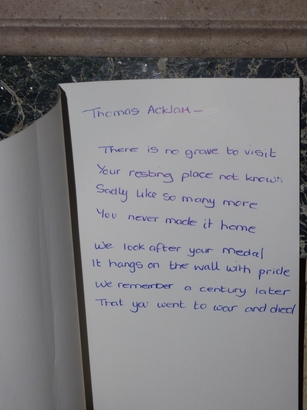 Thomas Acklam -
There is no grave to visit
Your resting place not known
Sadly like so many more
You never made it home
We look after your medal
It hangs on the wall with pride
We remember a century later
That you went to war and died